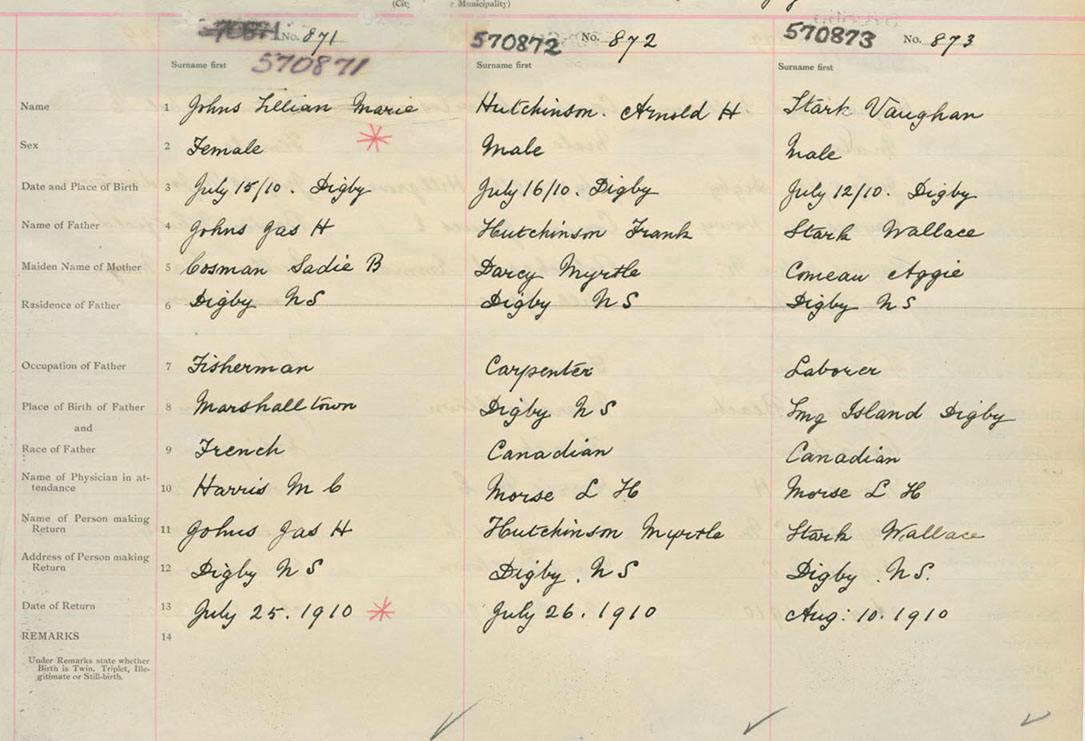 Municipality)
70871 No. 871 570872 No. 872 570873 No. 873
Surname first 570871 Surname first Surname first
Name 1 Johns Lillian Marie Hutchinson. Arnold H Stark Vaughan
Sex 2 Female Male Male
Date and Place of Birth 3 July 15/10. Digby July 16/10. Digby July 12/10. Digby
Name of Father 4 Johns Jas H Hutchinson Frank Stark Wallace
Maiden Name of Mother 5 Cosman Sadie B Darcy Myrtle Comeau Aggie
Residence of Father 6 Digby N S Digby N S Digby N S
Occupation of Father 7 Fisherman Carpenter Laborer
Place of Birth of Father 8 Marshalltown Digby N S Long Island Digby
and
Race of Father 9 French Canadian Canadian
Name of Physician in at-
tendance 10 Harris M C Morse L H Morse L H
Name of Person making
Return 11 Johns Jas H Hutchinson Myrtle Stark Wallace
Address of Person making
Return 12 Digby N S Digby. N S Digby. N S.
Date of Return 13 July 25. 1910 July 26. 1910 Aug: 10. 1910
REMARKS 14
Under Remarks state whether
Birth is Twin, Triplet, Ille-
gitimate or Still-birth.